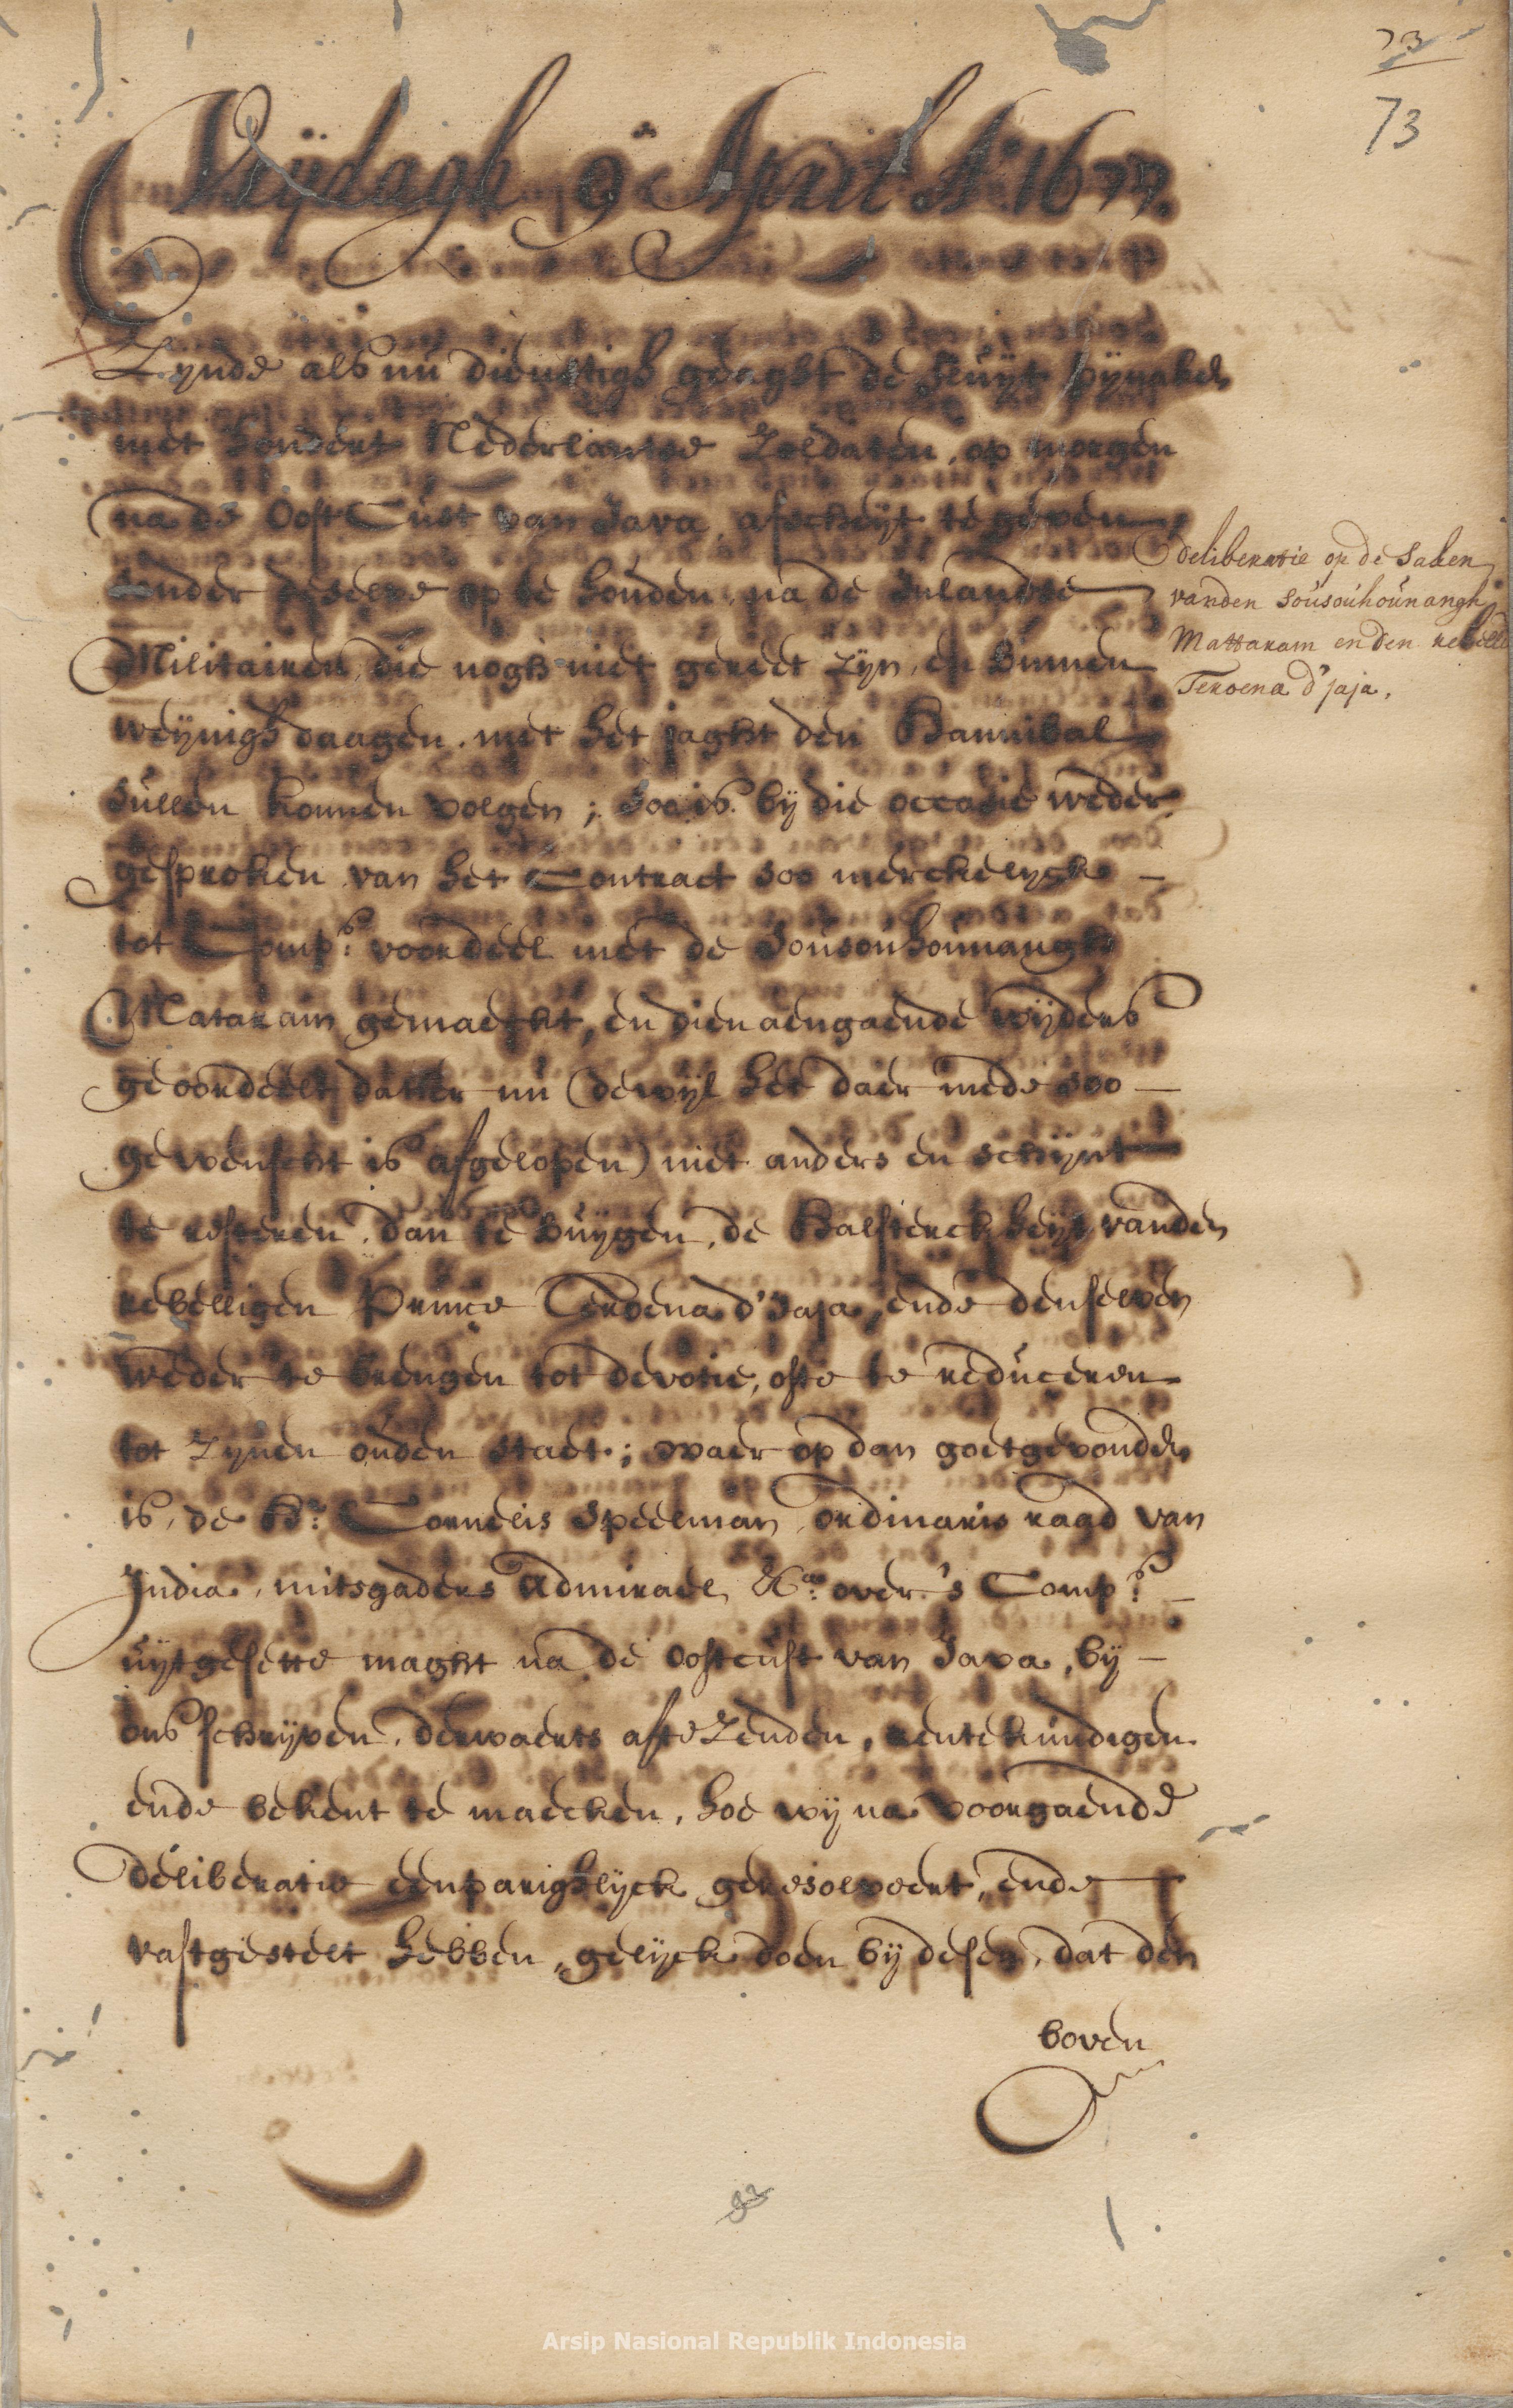 73
73
Vrijdagh 9e April Ao 1677.
Zynde als nu dienstigh geaght de fluyt Pynaken
met hondert Nederlantse Zoldaten, op morgen
na de Oost Cust van Java, afscheyt te geven
sonder deselve op te houden, na de Inlandse
Militairen, die nogh niet gereet zyn, en binnen
weynigh daagen, met het jaght den Hannibal
sullen konnen volgen; soo is bij die occasie weder
gesproken van het Contract soo merckelyck
tot Comps. voordeel met de Sousouhounangh
Mataram gemaeckt, en dien aengaende wijders
geoordeelt datter nu (dewijl het daer mede soo
gewenscht is afgelopen) niet anders en schijnt
te resteren, dan te buygen, de halsterckheyt vanden
rebelligen Prince Teroena d'Jaja, ende denselven
weder te brengen tot devotie, ofte te reduceren
tot zynen ouden staet; waer op dan goetgevonden
is, de Hr. Cornelis Speelman ordinaris raad van
India, mitsgaders Admirael &ca. over 's Comps.
uytgesette maght na de Oostcust van Java, bij
ons schrijven, derwaerts afte zenden, te kundigen
ende bekent te maecken, hoe wij na voorgaende
deliberatie eenparighlyck geresolveert, ende
vastgestelt hebben, gelyck doen bij desen, dat den
boven
Deliberatie op de saken
vanden Sousouhounangh
Mattaram en den rebelle
Teroena d'jaja.
Arsip Nasional Republik Indonesia